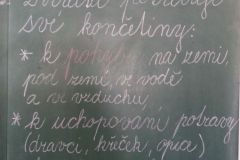 své končetiny:
* k pohybu na zemi,
pod zemí, ve vodě
a ve vzduchu,
* k uchopování potravy
(dravci, křeček, opice)